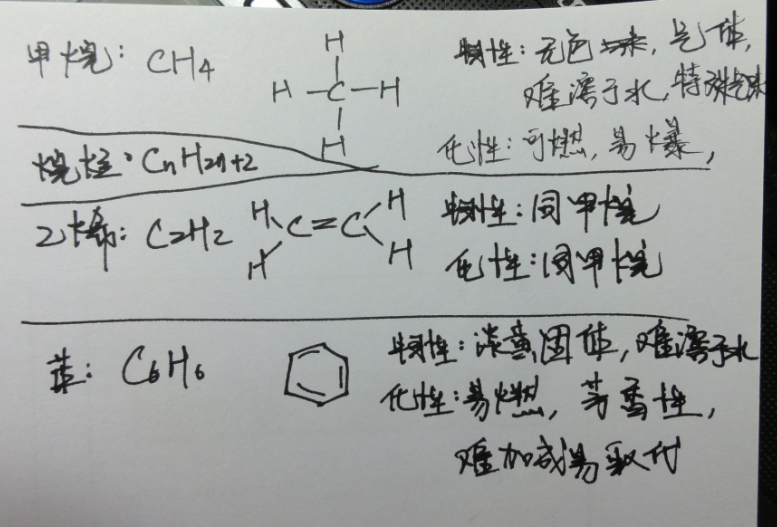 甲烷: CH4
H
H-C-H
H
物性: 无色, 气体,
难溶于水, 特殊气味
化性: 可燃, 易爆,
烷烃: CnH2n+2
乙烯: C2H2
H H
C=C
H H
物性: 同甲烷
化性: 同甲烷
苯: C6H6
物性: 淡黄固体, 难溶于水
化性: 易燃, 芳香性,
难加成易取代